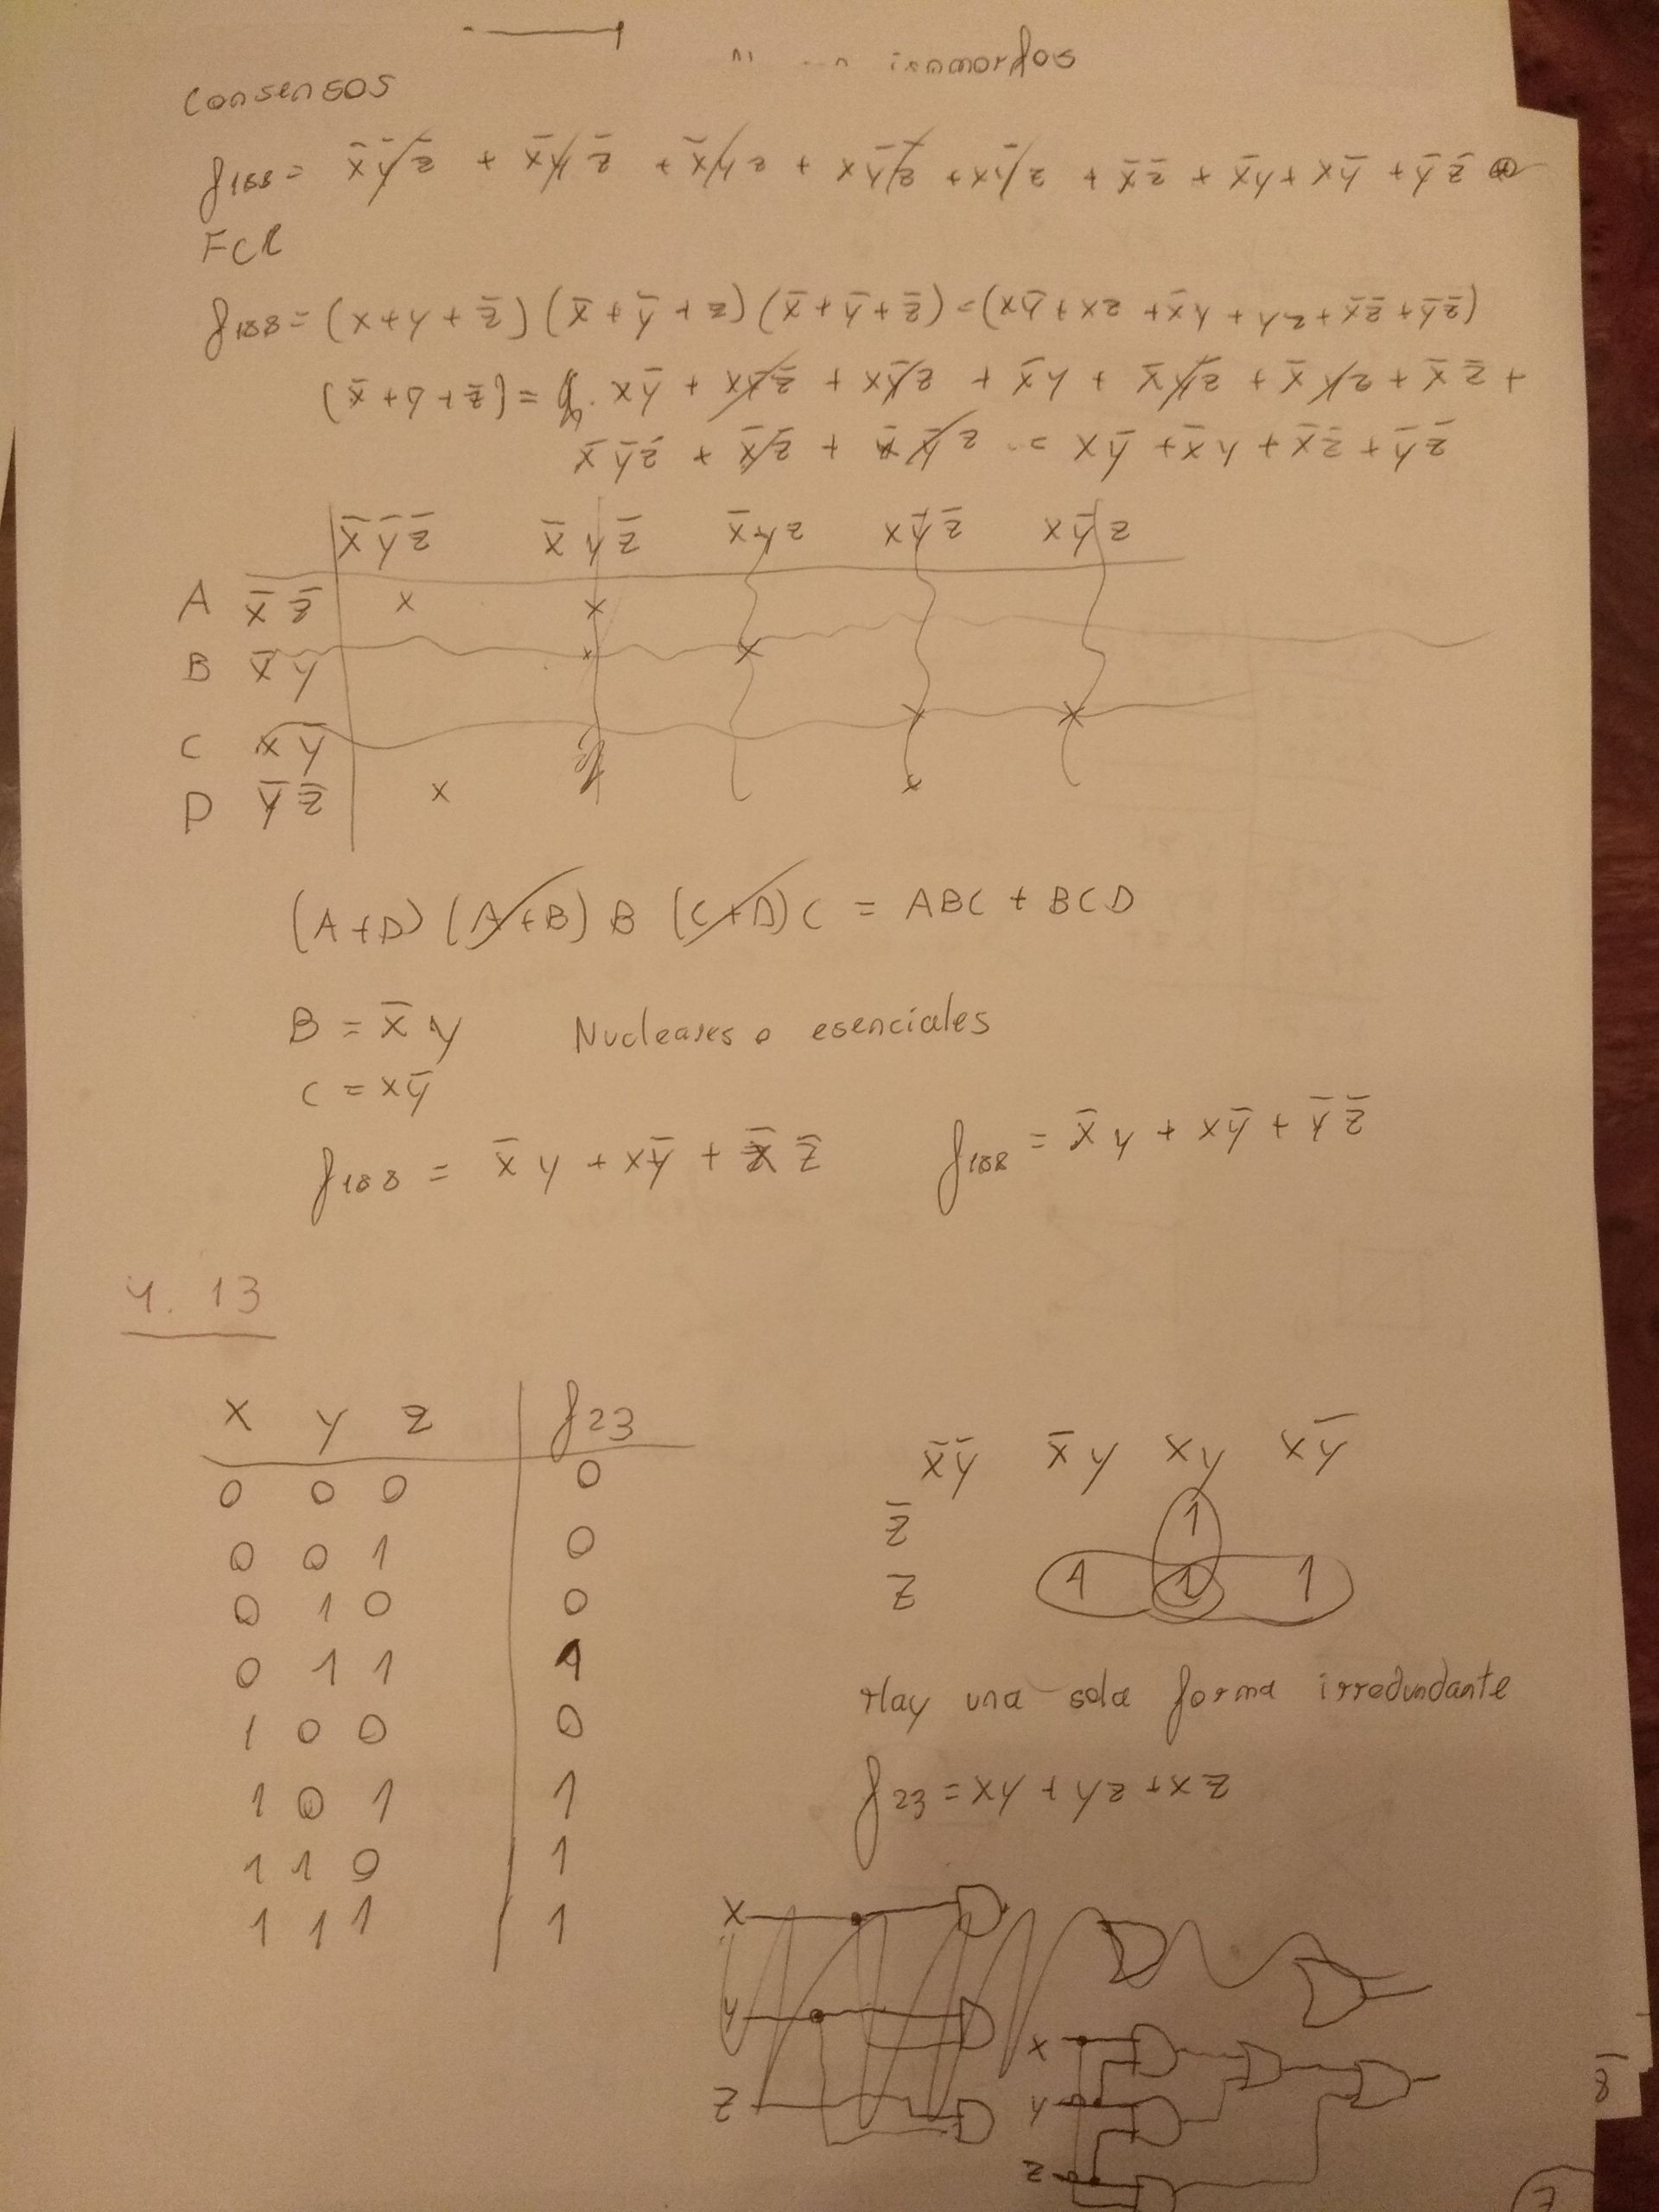 isomorfos
Consensos
f188 = x̄ȳz̄ + x̄yz̄ + x̄yz + xȳz̄ + xȳz + x̄z̄ + x̄y + xȳ + ȳz̄ ⊕
FCR
f188 = (x+y+z̄)(x̄+ȳ+z)(x̄+ȳ+z̄) = (xȳ + xz + x̄y + yz + x̄z̄ + ȳz̄)
(x̄+ȳ+z̄) = xȳ + xȳz̄ + xȳz + x̄y + x̄yz̄ + x̄yz + x̄z̄ +
x̄ȳz̄ + x̄z̄ + = xȳ + x̄y + x̄z̄ + ȳz̄
x̄ȳz̄ x̄yz̄ x̄yz xȳz̄ xȳz
A x̄z̄ x x
B x̄y x x
C xȳ x x
D ȳz̄ x x
(A+D)(A+B)B(C+D)C = ABC + BCD
B = x̄y Nucleares o esenciales
C = xȳ
f188 = x̄y + xȳ + x̄z̄ f188 = x̄y + xȳ + ȳz̄
4.13
x y z f23
0 0 0 0
0 0 1 0
0 1 0 0
0 1 1 1
1 0 0 0
1 0 1 1
1 1 0 1
1 1 1 1
x̄ȳ x̄y xy xȳ
z̄ 1
z 1 1 1
Hay una sola forma irredundante
f23 = xy + yz + xz
x
y
z
x
y
z